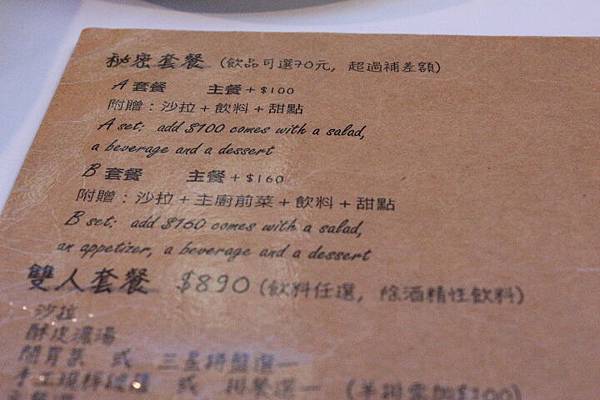 秘密套餐 (飲品可選70元, 超過補差額)
A 套餐 主餐+$100
附贈：沙拉+飲料+甜點
A set: add $100 comes with a salad,
a beverage and a dessert
B 套餐 主餐+$160
附贈：沙拉+主廚前菜+飲料+甜點
B set: add $160 comes with a salad,
an appetizer, a beverage and a dessert
雙人套餐 $890 (飲料任選, 除酒精性飲料)
沙拉
酥皮濃湯
開胃菜 或 三星拼盤選一
手工 或 選一 (羊排需加$100)